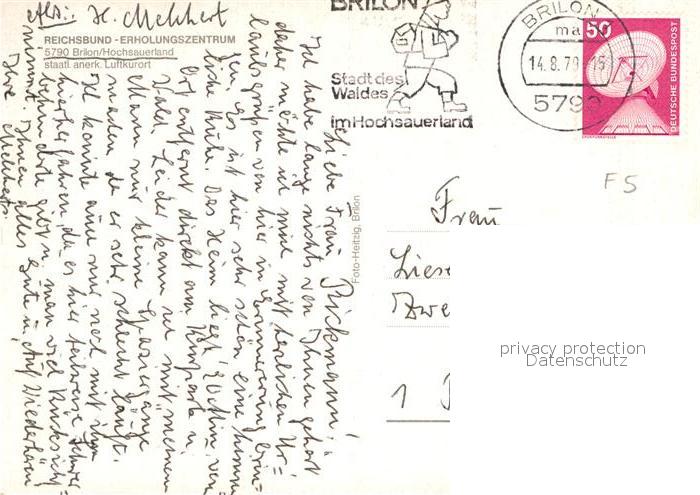 Abs.: H. Melchert
REICHSBUND - ERHOLUNGSZENTRUM
5790 Brilon/Hochsauerland
staatl. anerk. Luftkurort
BRILON
Stadt des
Waldes
im Hochsauerland
BRILON
ma
14.8.79-15
579
50
DEUTSCHE BUNDESPOST
F5
Foto-Heitzig, Brilon
Liebe Frau
Ich habe lange nichts von Ihnen gehört
daher möchte ich mich mit herzlichen Ur=
laubsgrüßen von hier in Erinnerung brin=
gen. Es ist hier sehr schön eine
Ruhe. Das Heim liegt 20 Min. vom
Ort entfernt direkt am Kurpark u.
Wald. Leider kann ich mit meinem
Mann nur kleine Spaziergänge
machen, da er sehr schlecht läuft.
Ich konnte auch nur noch mit ihm
hierher fahren, da es hier teilweise Schwer=
behinderte gibt u. man viel Rücksicht
nimmt. Ihnen alles Gute u. Auf Wiedersehen
Ihre
Melcherts
Frau
Liese
Zwe
1
privacy protection
Datenschutz